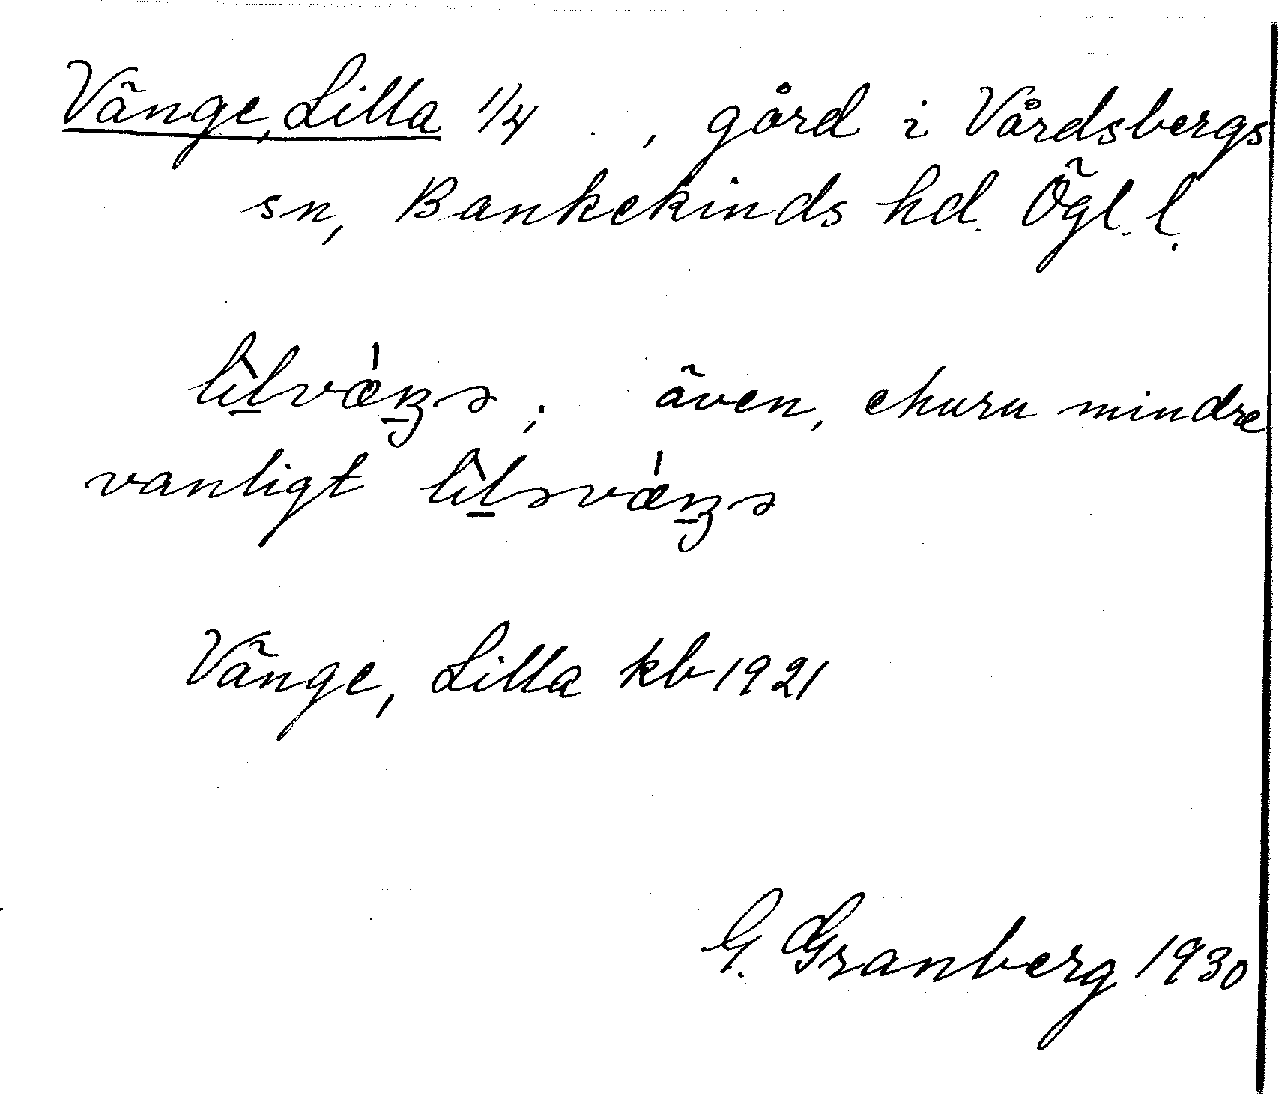 Vänge, Lilla 1/4 , gård i Vårdsbergs
sn, Bankekinds hd. Ögl. l.
lìl̠vǽn̠ʒə ; även, ehuru mindre
vanligt lìl̠əvǽn̠ʒə
Vänge, Lilla kb 1921
G. Granberg 1930